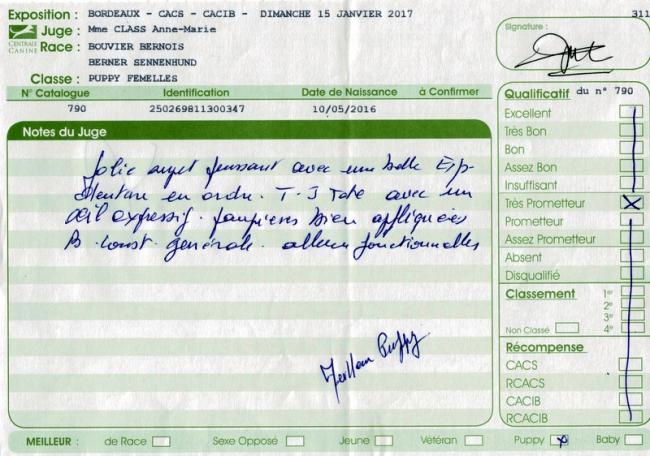 Exposition : BORDEAUX - CACS - CACIB - DIMANCHE 15 JANVIER 2017 311
CENTRALE CANINE
Juge : Mme CLASS Anne-Marie
Race : BOUVIER BERNOIS
BERNER SENNENHUND
Classe : PUPPY FEMELLES
Signature :
N° Catalogue Identification Date de Naissance à Confirmer
790 250269811300347 10/05/2016
Notes du Juge
Jolie sujet puissant avec une belle Exp.
Denture en ordre. T. J Tete avec un
œil expressif. paupières bien appliquées
B. const. générale. allures fonctionnelles
Meilleur Puppy
Qualificatif du n° 790
Excellent
Très Bon
Bon
Assez Bon
Insuffisant
Très Prometteur X
Prometteur
Assez Prometteur
Absent
Disqualifié
Classement 1er
2e
3e
Non Classé 4e
Récompense
CACS
RCACS
CACIB
RCACIB
MEILLEUR : de Race Sexe Opposé Jeune Vétéran Puppy X Baby